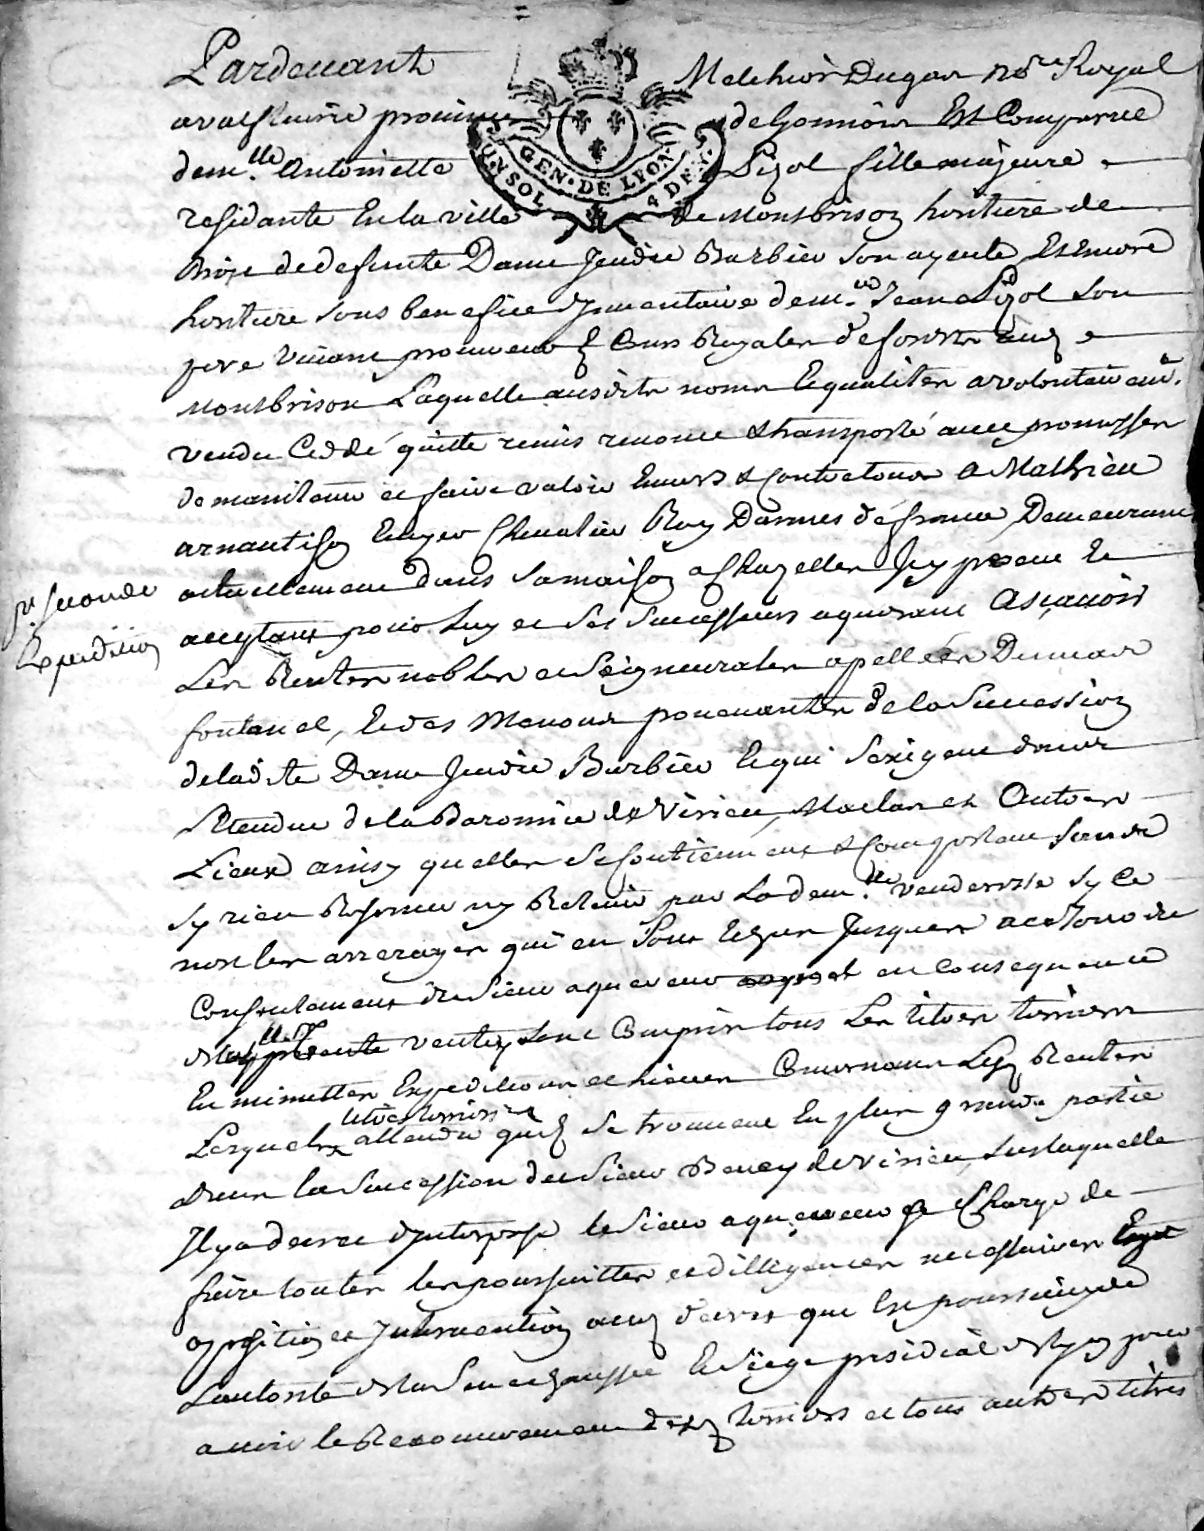 Pardevant Melchior Dugas no.re Royal
a valfleurie province de lionnois Est Comparue
dem.lle Antoinette Pizol fille majeure
GEN · DE LYON
UN SOL 4 DE Y.
residante En la ville de Montbrison heritiere de
droit de defunte Dame Judie Barbier son ayeule Et encore
heritiere sous benefice d'Inventaire dem.r Jean Pizol son
pere vivant procureur Cours Royales de forest
Montbrison Laquelle ausdits noms Et qualites a volontairem.t
vendu Ceddé quitté remis renoncé & transporté avec promesses
de maintenir et faire valoir Envers & Contre tous a Mathieu
arnaud Ecuyer Chevalier Roy Darmes de france Demeurant
actuellement dans sa maison a Chazelles Icy present Et
p.r seconde
Expedition
acceptant pour Luy et ses successeurs aquereur Asçavoir
Les Rentes nobles et Seigneurales apellées Dumas
fontanel, Et des Manoux provenantes de la Succession
de ladite Dame Judie Barbier Et qui s'exigent dans
l'Etendue de la Baronnie de Virieu, Maclas et Autres
Lieux ainsy quelles se soutiennent & Comportent sans
sy rien Reserver ny Retenir par La dem.lle venderesse sy ce
nest les arrerages qui en sont Echus Jusques a ce Jour du
Consentement du Sieur aquereur en consequence
de la presente vente, sont Compris tous Les titres terriers
Et minuttes Expeditions et lieves Concernant Les Rentes
Lesquels titres terriers attendu quil se trouvent En plus grande partie
dans la Succession du Sieur Benay de Virieu, sur laquelle
Il y a decret d'Interposé le Sieur aquereur se Charge de
faire toutes les poursuittes et dilligences necessaires
opposition et Intervention au decret que Est poursuivy de
Lautorité de la Senechaussée Et siege presidial de Lyon pour
avoir le Recouvrement des terriers et tous autres titres